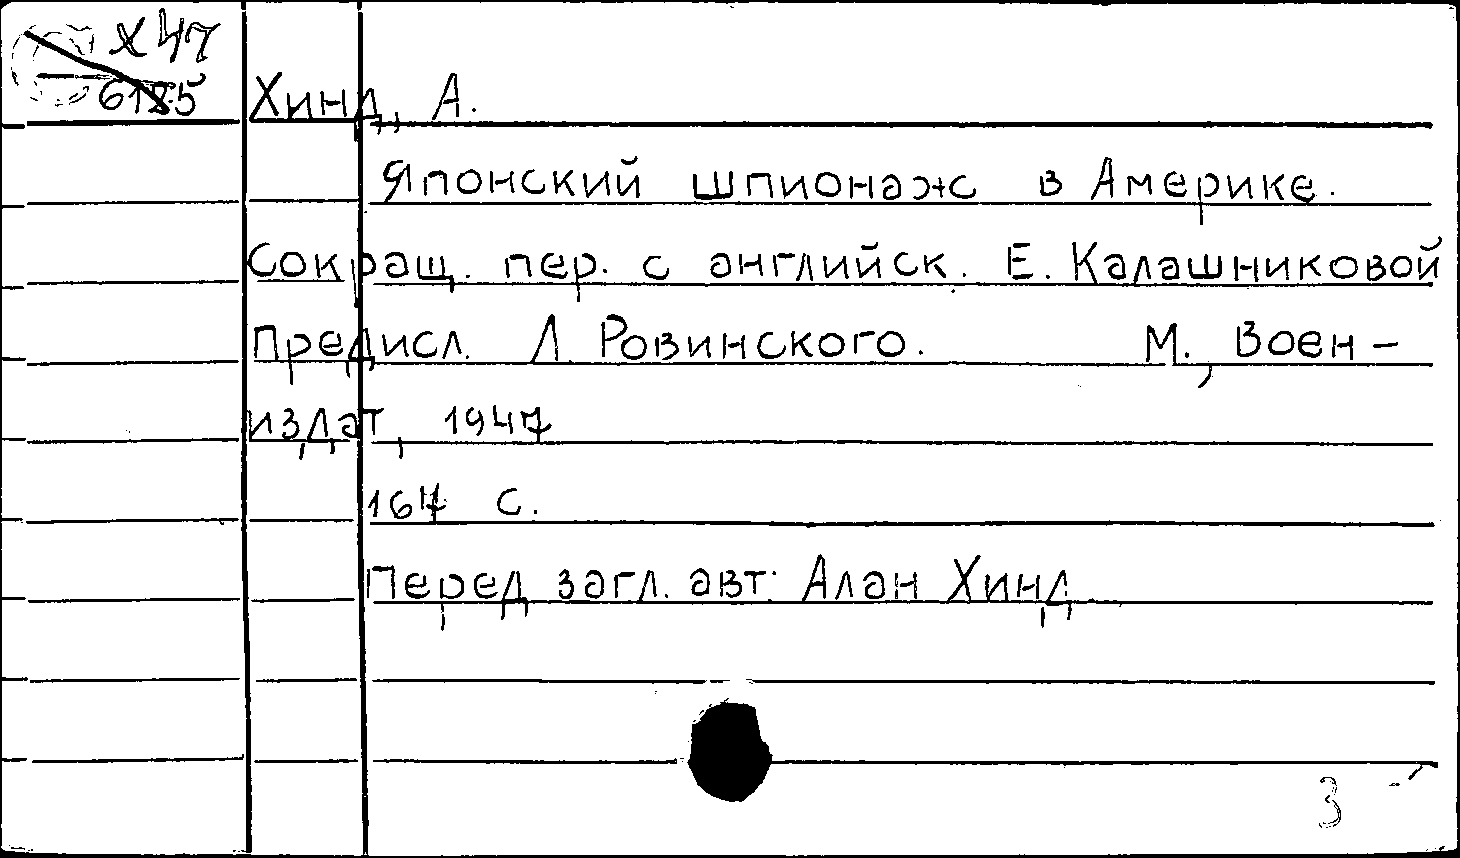 Х47
6185
Хинд, А.
Японский шпионаж в Америке.
Сокращ. пер. с английск. Е. Калашниковой
Предисл. Л. Ровинского. М., Воен-
издат, 1947
167 с.
Перед загл. авт: Алан Хинд
3